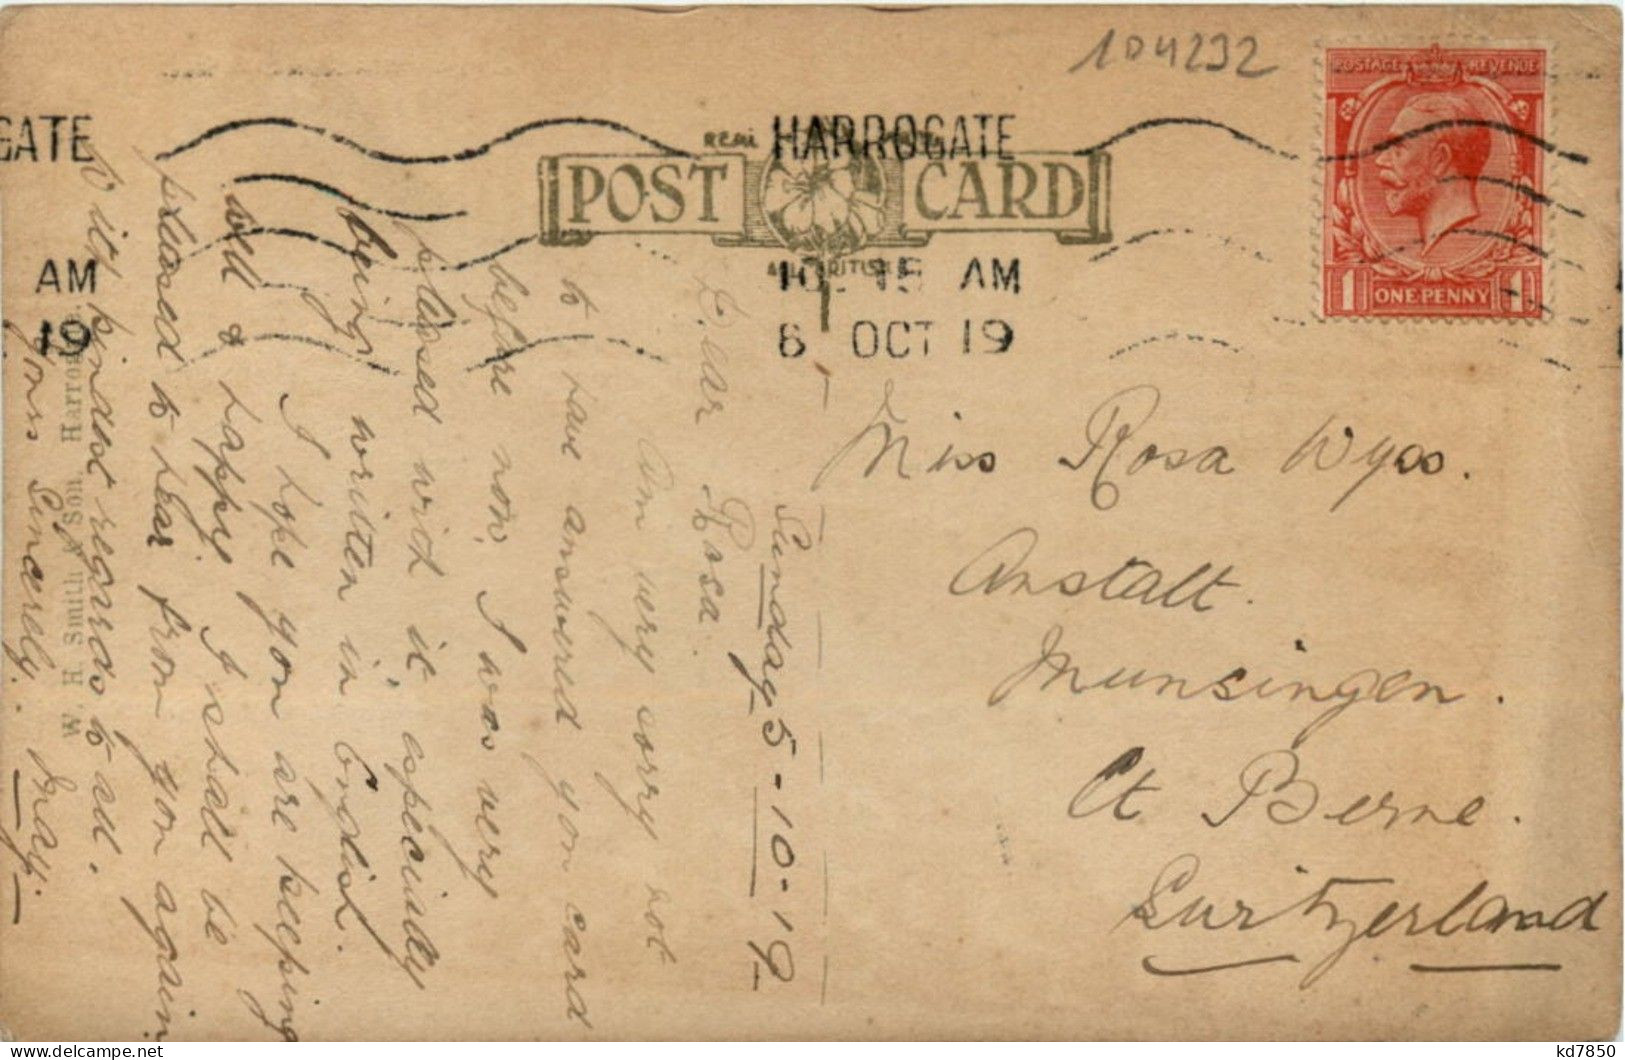 104232
GATE
HARROGATE
REAL
POST CARD
ALL BRITISH
AM
19
10.15 AM
6 OCT 19
POSTAGE REVENUE
1 ONE PENNY 1
Miss Rosa Wyss.
Anstalt.
Munsingen.
Ct Berne.
Switzerland
Sunday 5-10-19
Dear Rosa.
Am very sorry not
to have answered you card
before now, I was very
pleased with it, especially
being written in English.
I hope you are keeping
well & happy, I shall be
pleased to hear from you again
kindest regards to all.
Yours Sincerely. May.
W. H. Smith & Son, Harrogate.
kd7850